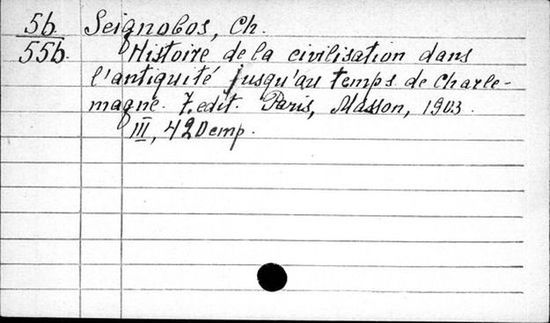 56. Seignobos, Ch.
556. Histoire de la civilisation dans
l'antiquité jusqu'au temps de Charle-
magne. 7. edit. Paris, Masson, 1903
III, 420 emp.